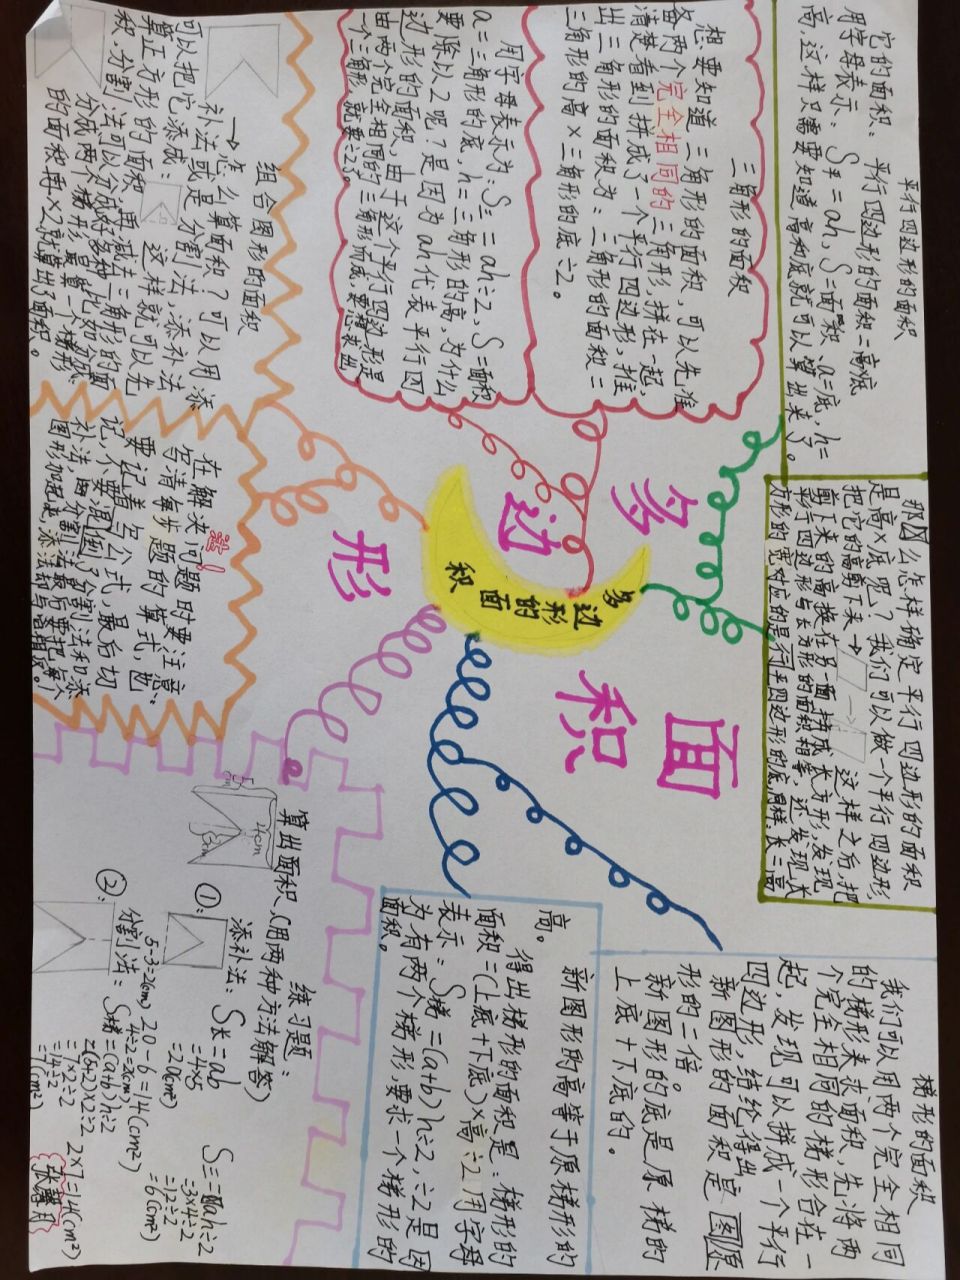 平行四边形的面积
它的面积：平行四边形的面积=高×底
用字母表示：S平=ah、S=面积、a=底，h=
高，这样只需要知道高和底就可以算出来了。
那么怎样确定平行四边形的面积
是高×底呢？我们可以做一个平行四边形
把它的高剪下来→
这样之后，把
剪下来的高换在另一面，拼成长方形，发现
平行四边形与长方形的面积相等，还发现长
方形的宽对应的是平行四边形的底
三角形的面积
想要知道三角形的面积，可以先准
备两个完全相同的三角形，拼在一起，
清楚看到拼成了一个平行四边形，推
出三角形的面积为：三角形的面积=
三角形的高×三角形的底÷2。
用字母表示为：S三=ah÷2，S=面积
a=三角形的底，h=三角形的高，为什么
要除以2呢？是因为ah代表平行四
边形的面积，由于这个平行四边形是
由两个完全相同的三角形而成，要想求出
一个三角形，就要÷2。
组合图形的面积
→怎么算面积？可以用添
补法或是分割法，添补法
可以把它添成：
这样就可以先
算正方形的面积，再减去三角形的面
积。分割法可以分成好多种，比如分成
分成两个梯形，最算一个梯形
的面积再×2就算出了面积。
注！
在解决问题时要注意：
写清每步题的算式，也
要记着写公式，最后切
记不要混倒了分割法和添
补法，分割法最后要把每个
图形加起来，添补法却与它相反。
多
边
形
面
积
多
边形
的面
积
梯形的面积
我们可以用两个完全相同
的梯形来求面积，先将两
个完全相同的梯形合在一
起，发现可以拼成一个平行
四边形，结论得出
新图形的面积是原
形的二倍。
新图形的底是原梯的
上底+下底的。
新图形的高等于原梯形的
高。
得出梯形的面积是：梯形的
面积=（上底+下底）×高÷2用字母
表示：S梯=(a+b)h÷2，÷2是因
为有两个梯形要求一个梯形的
面积。
练习题：
算出面积、（用两种方法解答）
5cm
4cm
3cm
①：
添补法：S长=ab
=4×5
=20(cm²)
S三=ah÷2
=3×4÷2
=12÷2
=6(cm²)
20-6=14(cm²)
②：
分割法：S梯=(a+b)h÷2
5-3=2(cm)
4÷2=2(cm)
=(5+2)×2÷2
=7×2÷2
=14÷2
=7(cm²)
2×7=14(cm²)